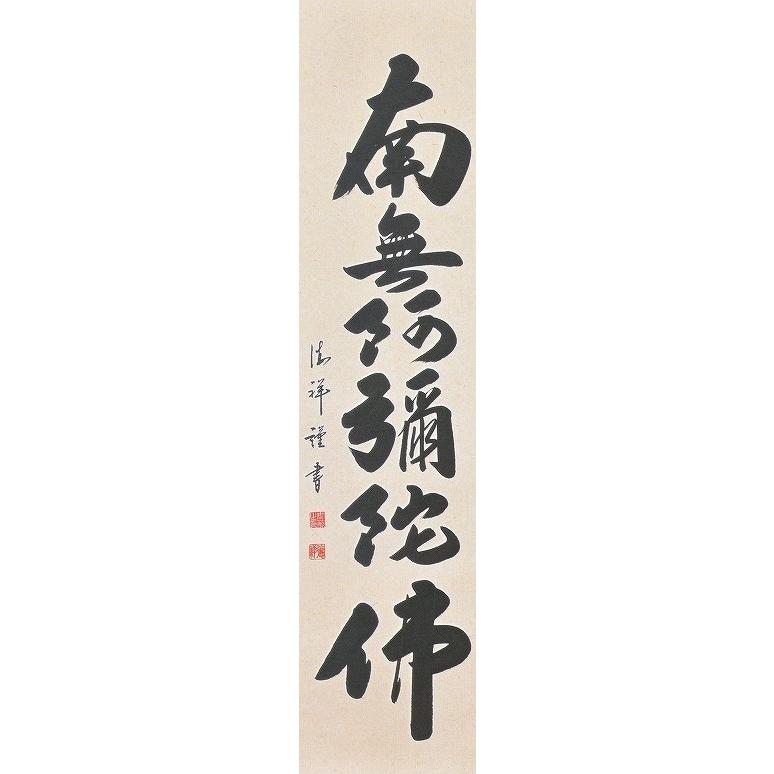 南無阿彌陀佛
法祥謹書